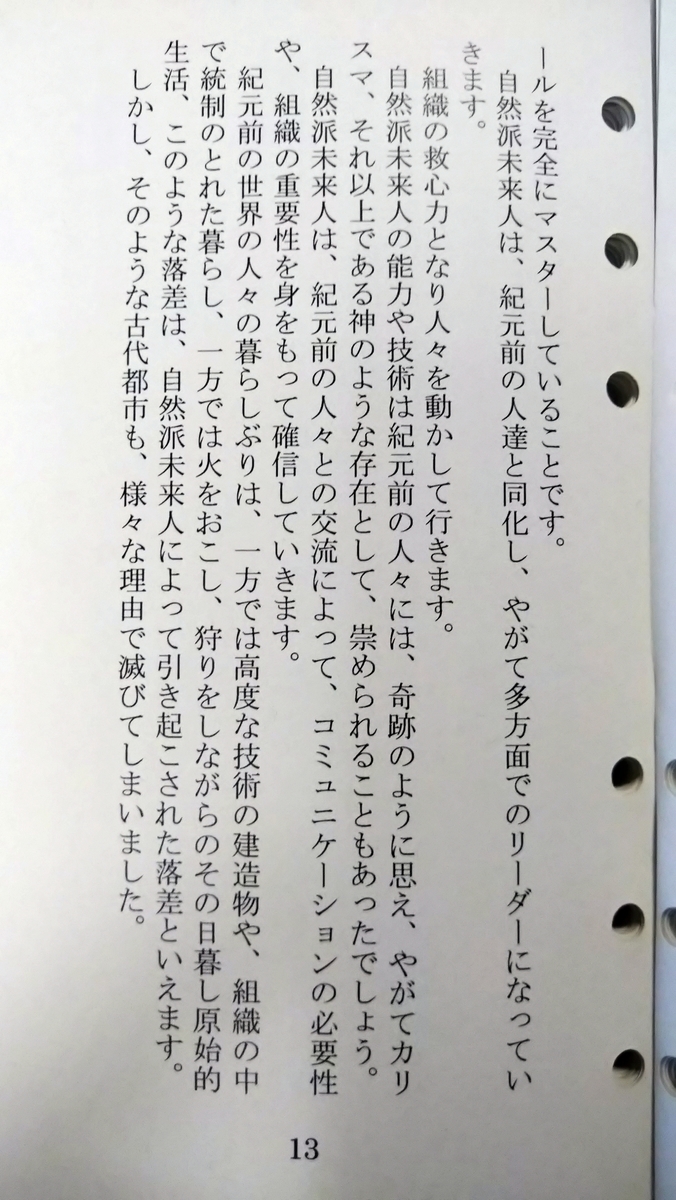 ールを完全にマスターしていることです。
自然派未来人は、紀元前の人達と同化し、やがて多方面でのリーダーになってい
きます。
組織の救心力となり人々を動かして行きます。
自然派未来人の能力や技術は紀元前の人々には、奇跡のように思え、やがてカリ
スマ、それ以上である神のような存在として、崇められることもあったでしょう。
自然派未来人は、紀元前の人々との交流によって、コミュニケーションの必要性
や、組織の重要性を身をもって確信していきます。
紀元前の世界の人々の暮らしぶりは、一方では高度な技術の建造物や、組織の中
で統制のとれた暮らし、一方では火をおこし、狩りをしながらのその日暮し原始的
生活、このような落差は、自然派未来人によって引き起こされた落差といえます。
しかし、そのような古代都市も、様々な理由で滅びてしまいました。
13